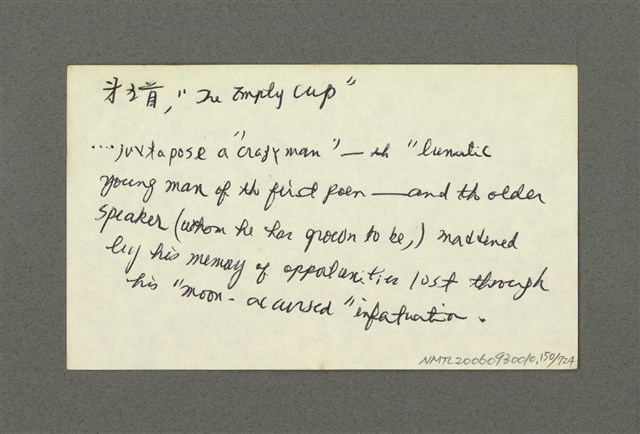 才5首, "The Empty Cup"
....juxtapose a "crazy man" — th "lunatic
young man of th first poem — and th older
speaker (whom he has grown to be,) maddened
by his memory of opportunities lost through
his "moon-accursed" infatuation.
NMTL20060930010,150/724